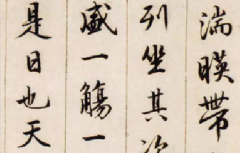 湍暎帶
列坐其次
盛一觴一
是日也天